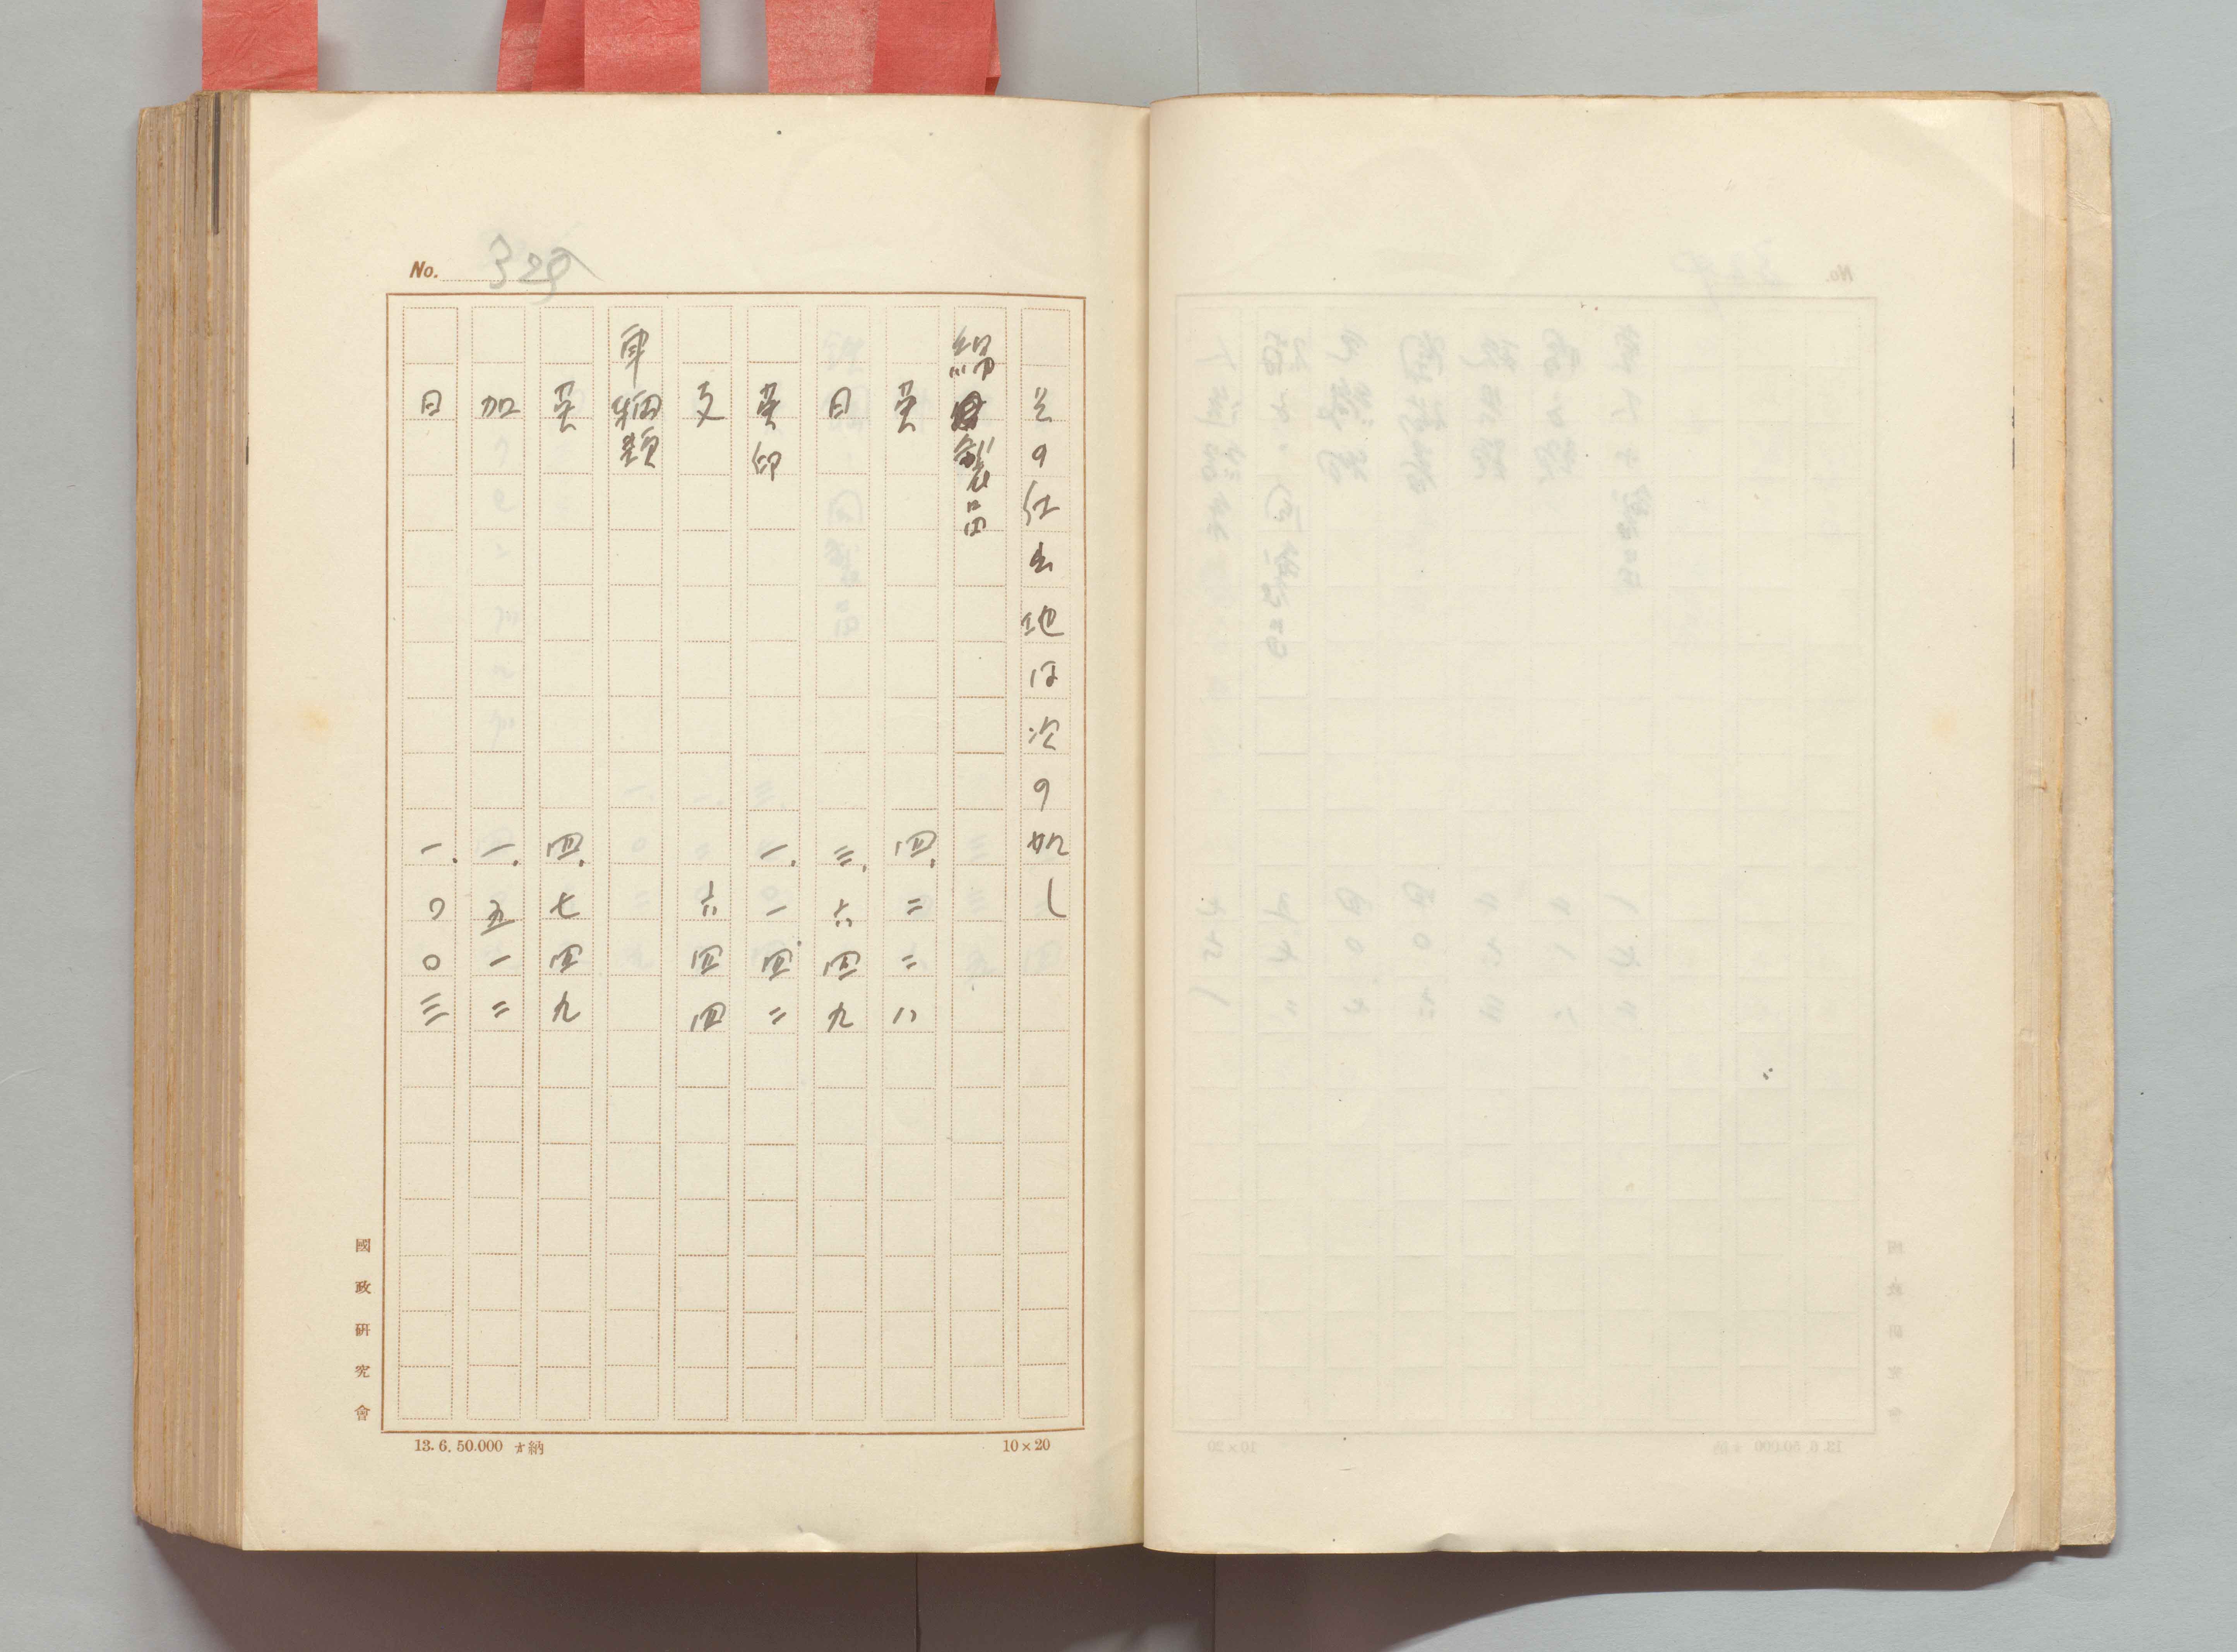 No.
之の仕出地は次の如し
綿製品
英 四.二二八
日 三.六四九
英印 一.一四二
支 六四四
車輛類
英 四.七四九
加 一.五一二
日 一.〇〇三
國政研究會
13.6.50.000 納
10×20